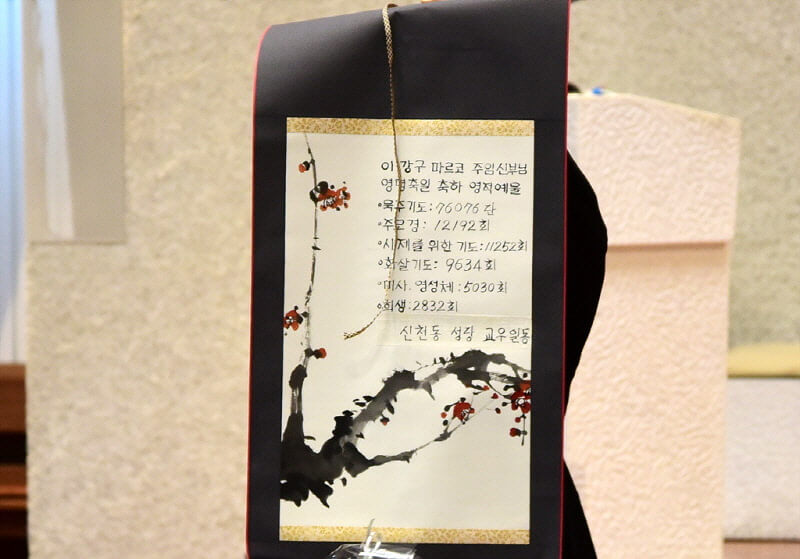 이강구 마르코 주임신부님
영명축일 축하 영적예물
•묵주기도:76076단
•주모경: 12192회
•사제를 위한 기도:11252회
•화살기도: 9634회
•미사.영성체:5030회
•희생:2832회
신천동 성당 교우일동